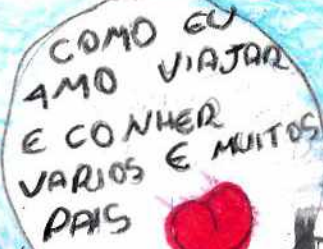 COMO EU
AMO VIAJAR
E CONHER
VARIOS E MUITOS
PAIS